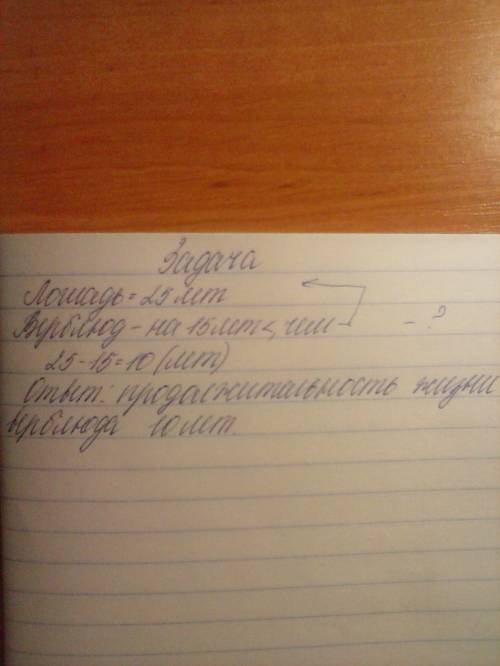 Задача
Лошадь = 25 лет
Верблюд - на 15 лет <, чем - ?
25 - 15 = 10 (лет)
Ответ: продолжительность жизни
верблюда 10 лет.